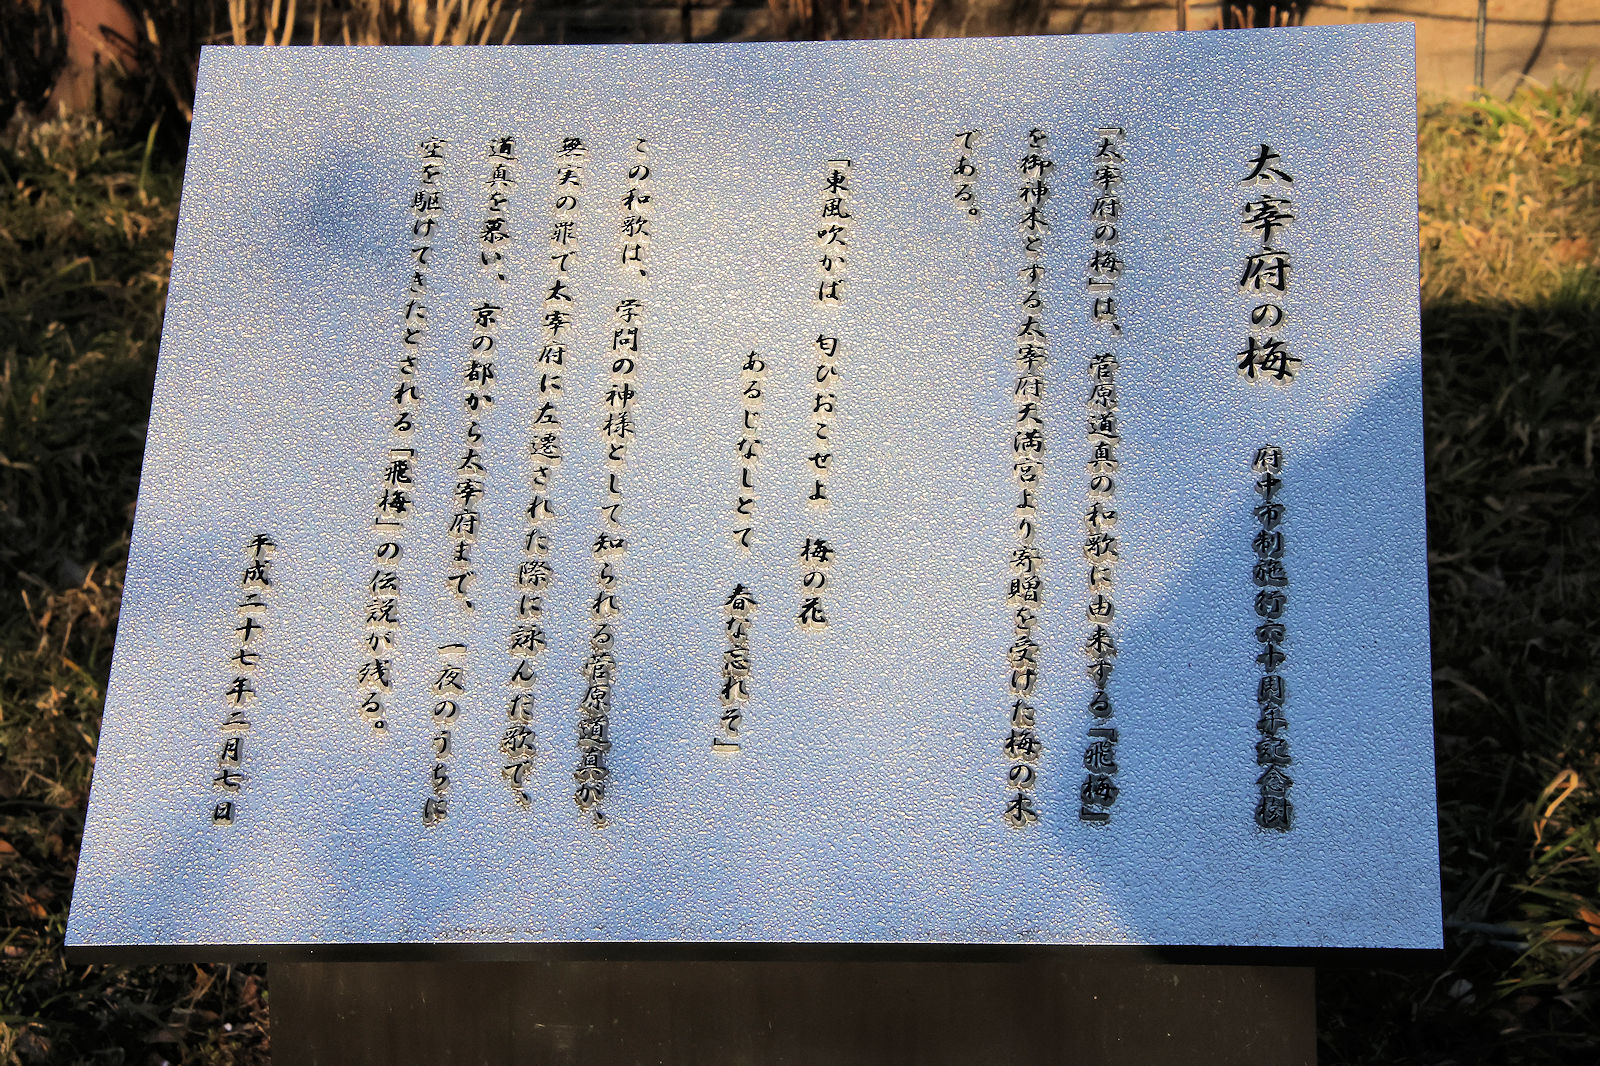 太宰府の梅 府中市制施行六十周年記念樹
「太宰府の梅」は、菅原道真の和歌に由来する「飛梅」
を御神木とする太宰府天満宮より寄贈を受けた梅の木
である。
「東風吹かば 匂ひおこせよ 梅の花
あるじなしとて 春な忘れそ」
この和歌は、学問の神様として知られる菅原道真が、
無実の罪で太宰府に左遷された際に詠んだ歌で、
道真を慕い、京の都から太宰府まで、一夜のうちに
空を駆けてきたとされる「飛梅」の伝説が残る。
平成二十七年二月七日